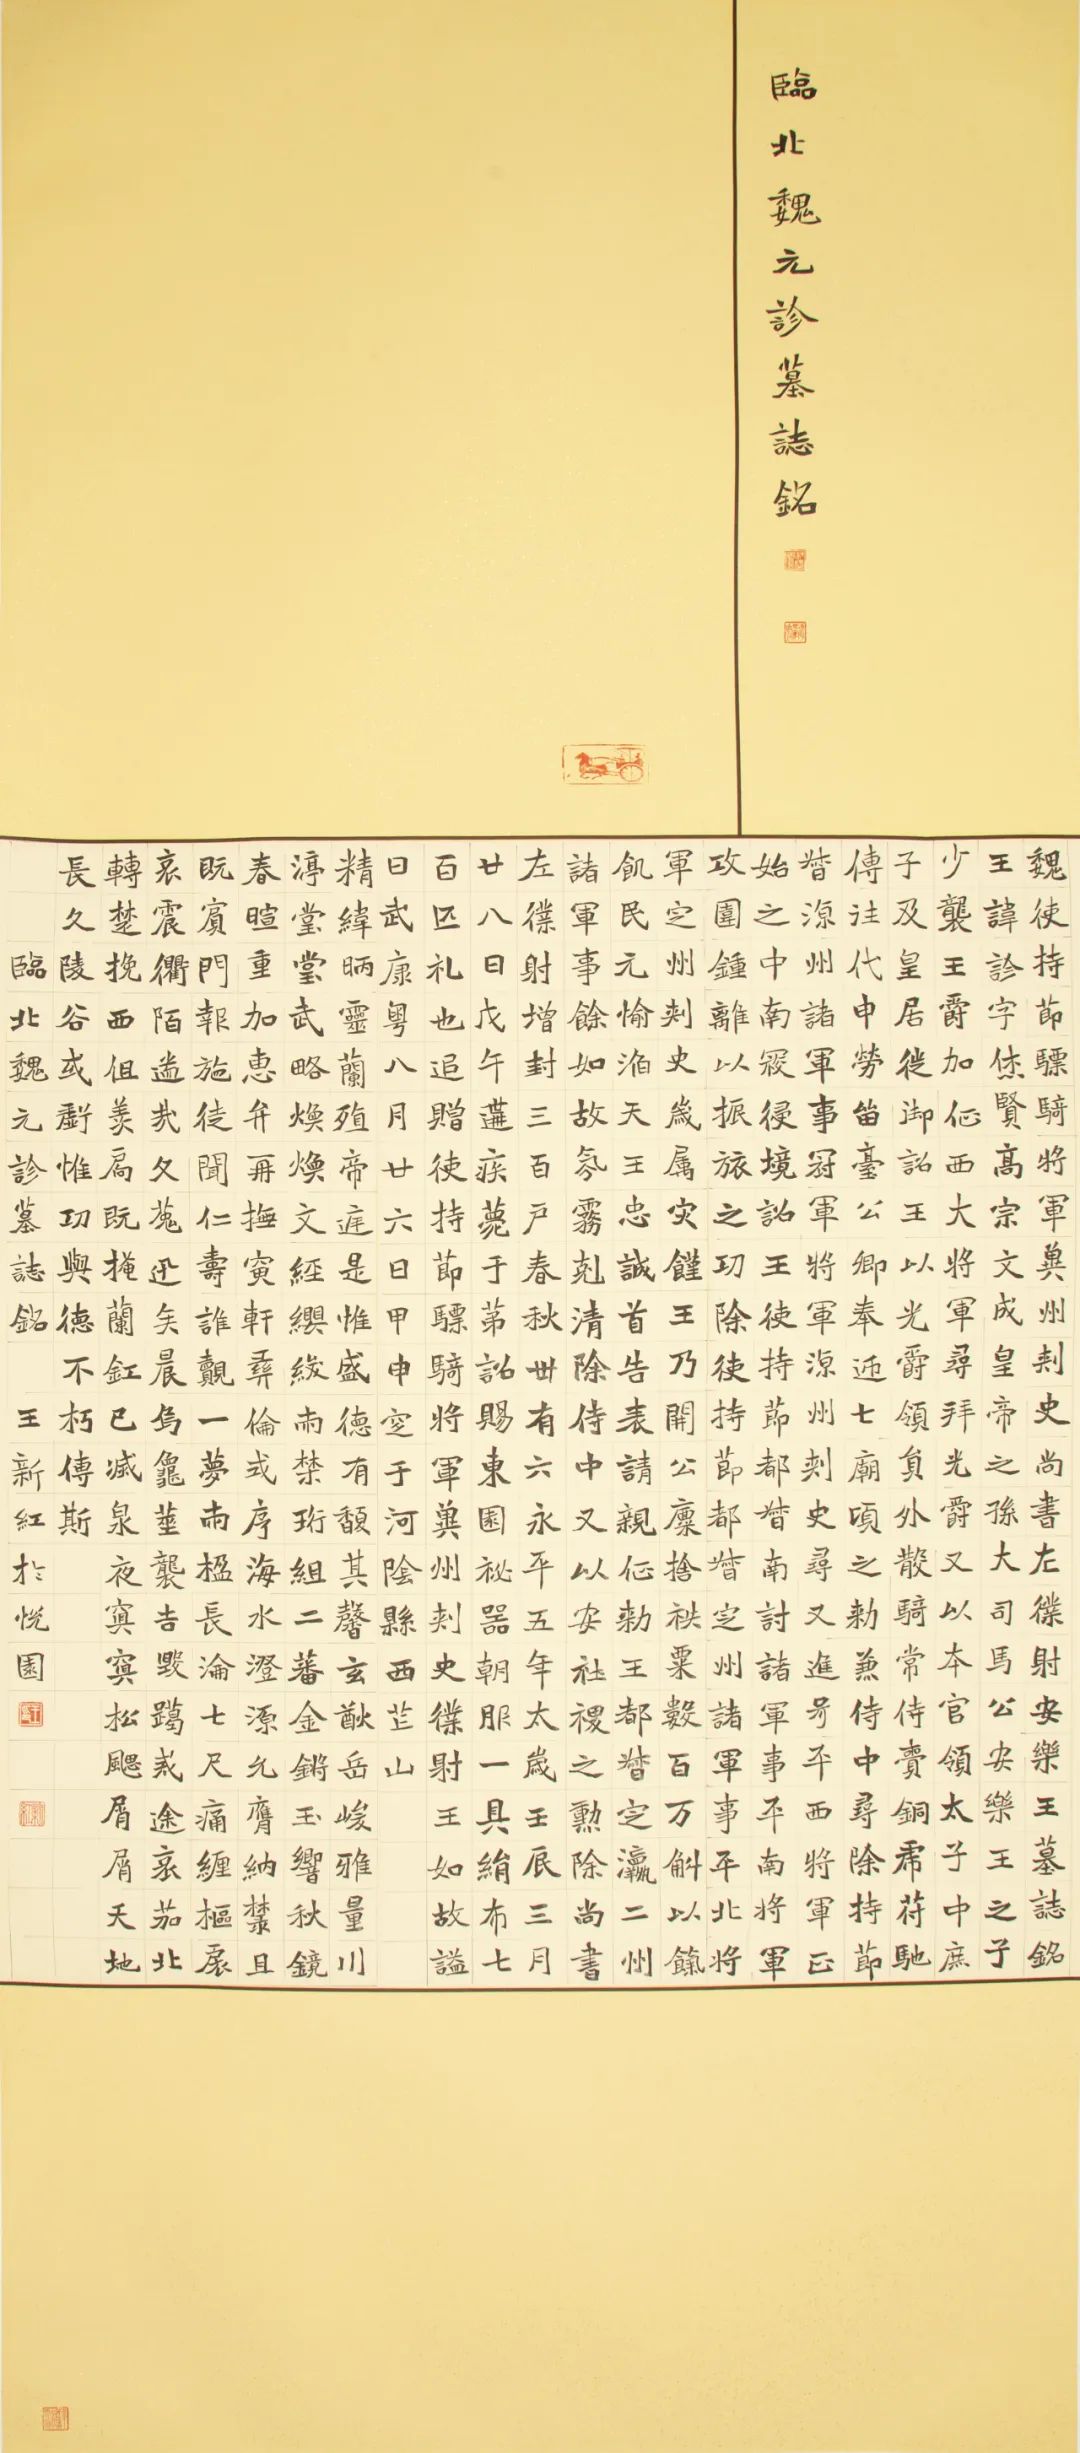 臨北魏元診墓誌銘
魏使持節驃騎將軍冀州刾史尚書左僕射安樂王墓誌銘
王諱診字休賢高宗文成皇帝之孫大司馬公安樂王之子
少襲王爵加征西大將軍尋拜光爵又以本官領太子中庶
子及皇居徙御詔王以光爵領負外散騎常侍賷銅虎苻馳
傳注代申勞留臺公卿奉迊七廟頃之勅兼侍中尋除持節
督涼州諸軍事冠軍將軍涼州刾史尋又進号平西將軍正
始之中南寇侵境詔王使持節都督南討諸軍事平南將軍
攻圍鍾離以振旅之功除使持節都督定州諸軍事平北將
軍定州刾史歲属灾饉王乃開公廩捨秩粟數百万斛以餼
飢民元愉滔天王忠誠首告表請親征勅王都督定瀛二州
諸軍事餘如故氛霧剋清除侍中又以安社稷之勳除尚書
左僕射增封三百户春秋卅有六永平五年太歲壬辰三月
廿八日戊午遘疾薨于第詔賜東園祕器朝服一具絹布七
百匹礼也追贈使持節驃騎將軍冀州刾史僕射王如故謚
曰武康粤八月廿六日甲申窆于河陰縣西芒山
精緯昞靈蘭殖帝庭是惟盛德有馥其馨玄猷岳峻雅量川
渟堂堂武略煥煥文經纓紱両禁珩組二蕃金鏘玉響秋鏡
春暄重加惠弁再撫寅軒彝倫或序海水澄源允膺納麓且
既賓門報施徒聞仁壽誰覿一夢両楹長淪七尺痛纏樞扆
哀震衢陌遄哉夂菟迅矣晨烏龜筮襲吉毀躅戒途哀茄北
轉楚挽西徂羨扃既掩蘭釭已滅泉夜寘寘松飔屑屑天地
長久陵谷或虧惟功與德不朽傳斯
臨北魏元診墓誌銘 王新紅於悅園